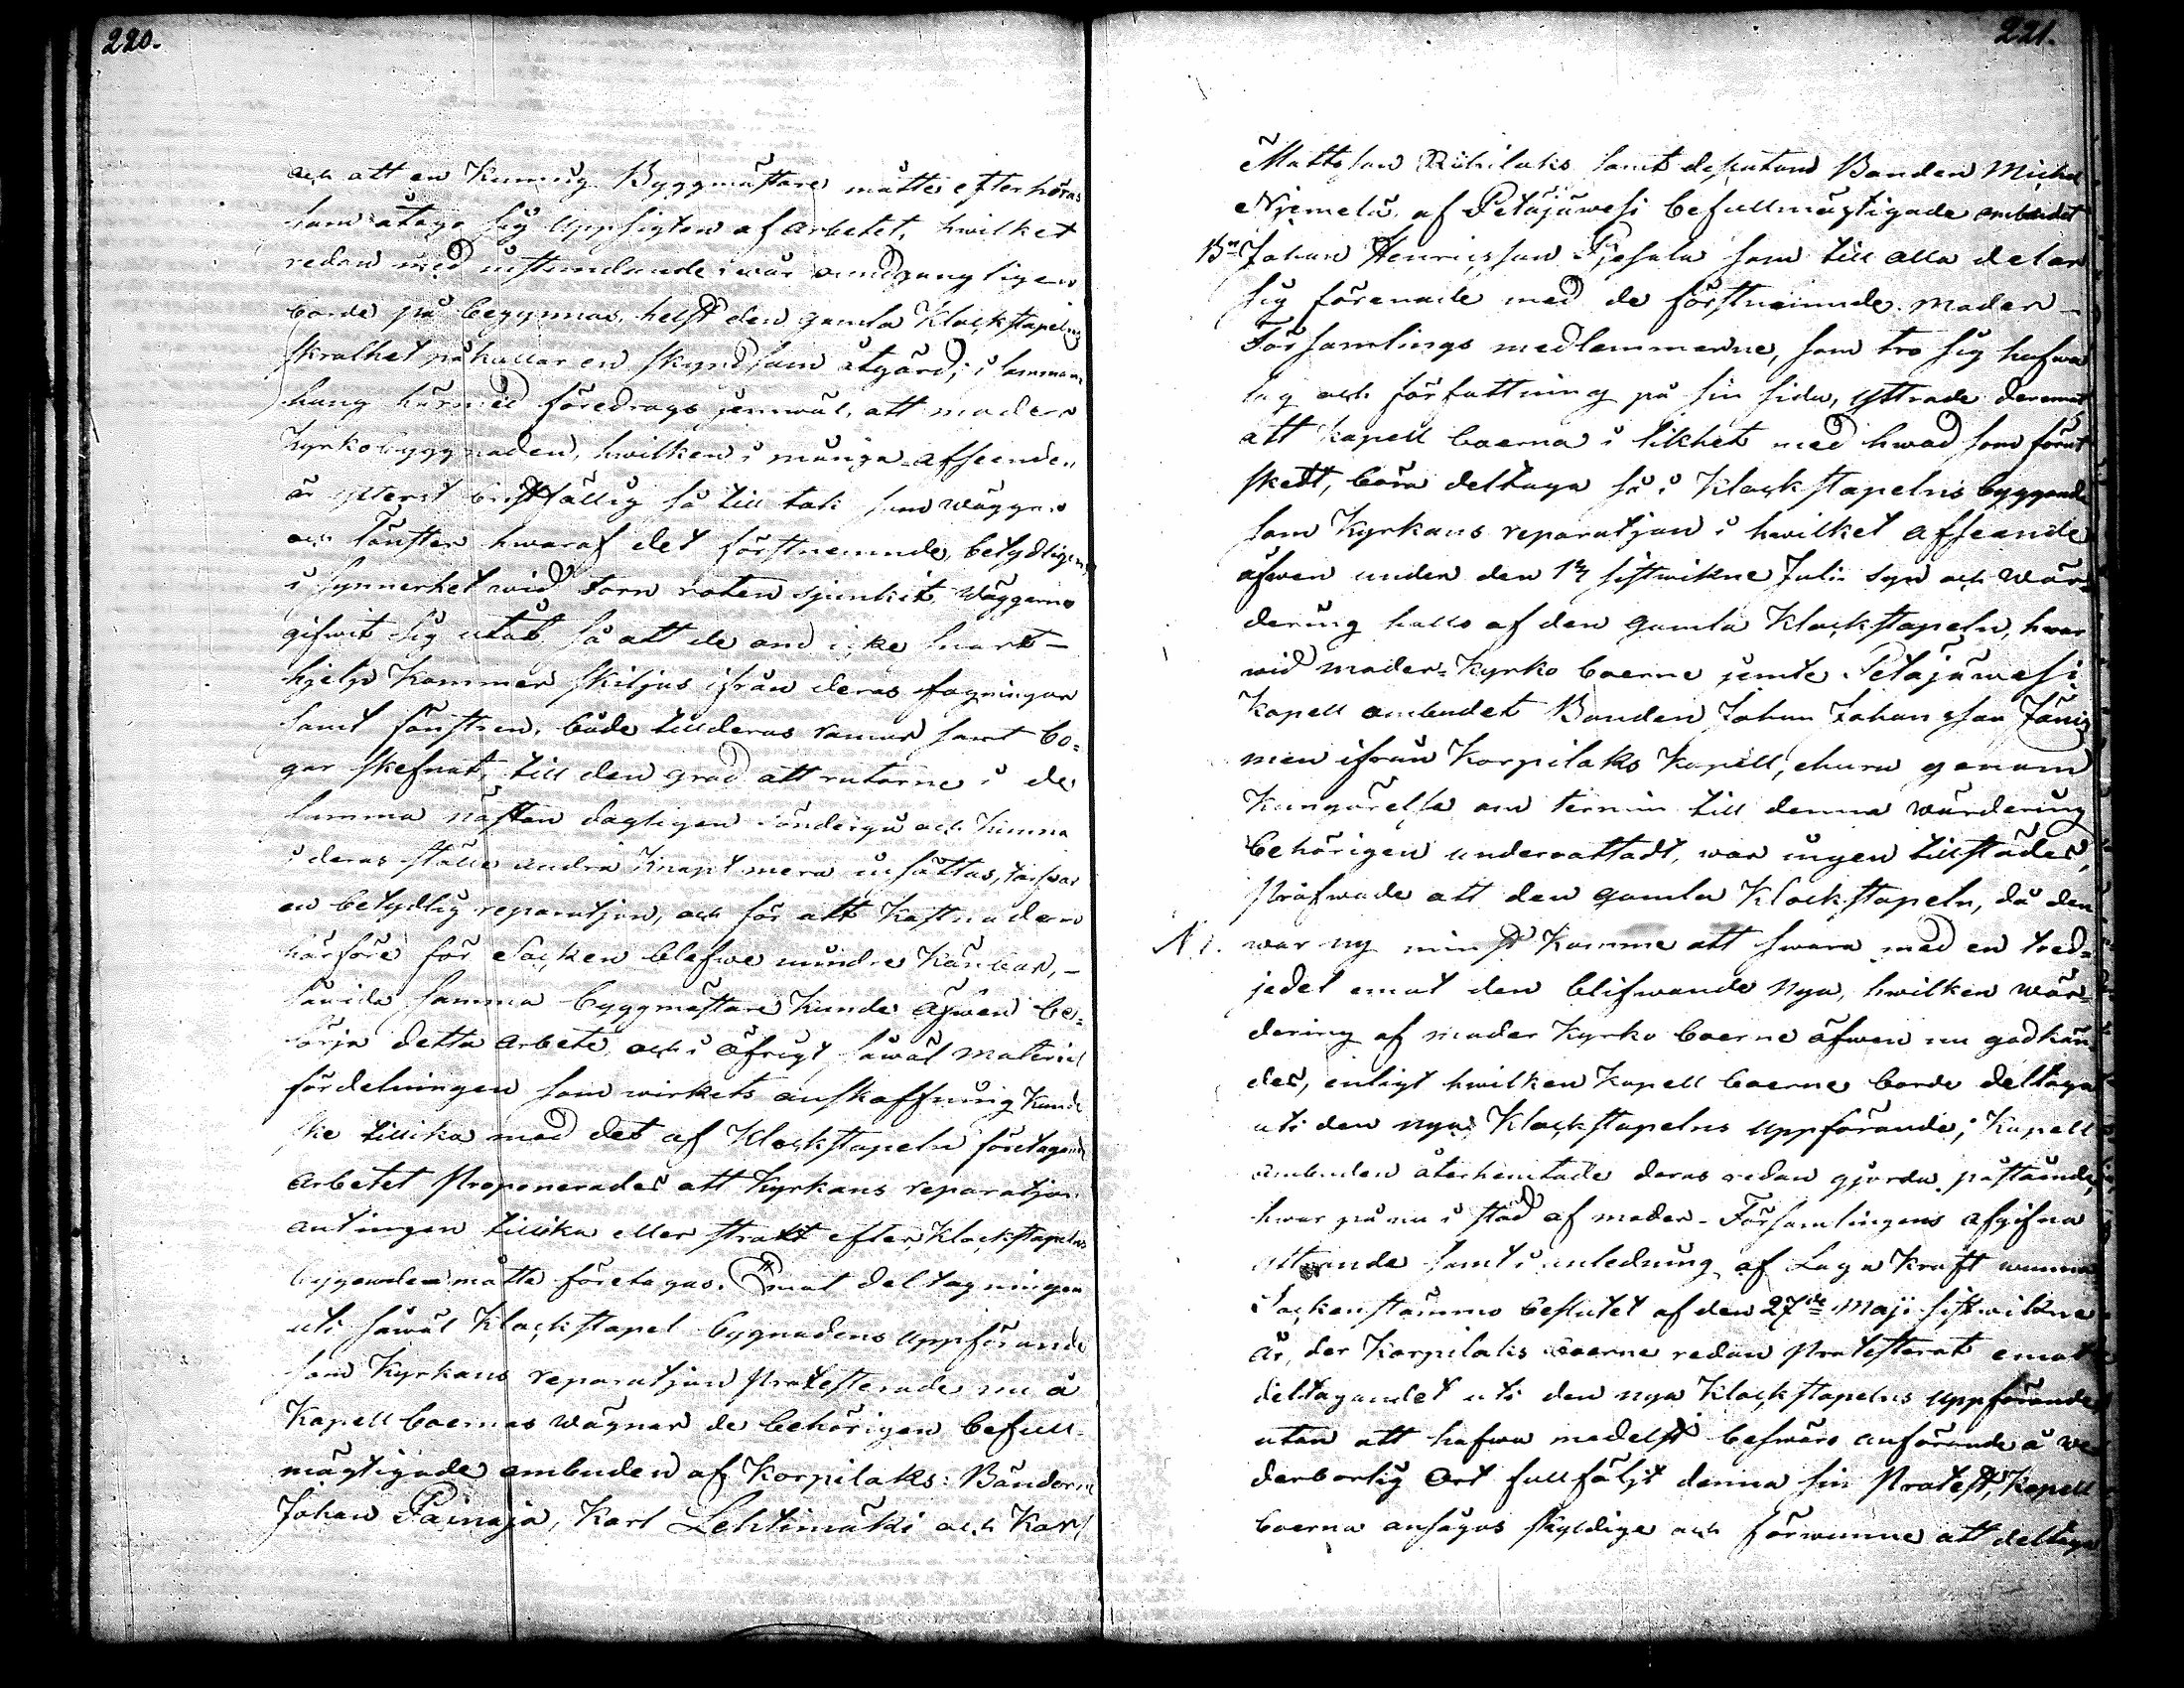 220.
och att en kunnig Byggmästare måtte efterhöras
som åtage sig uppsigten af arbetet, hwilket
redan med instundande wår oundgängligen
borde på begynnas, helst den gamla Klockstapelns
skralhet påkallar en skyndsam åtgärd; i samman
hang härmed föredrogs jemwäl, att moder
Kyrkobyggnaden, hwilken i många afseenden
är ytterst bristfällig så till tak som wäggar
och fönster hwaraf det förstnemnde, betydligen
i synnerhet wid torn roten sjunkit, wäggarne
gifwit sig utåt så att de om icke snart
hjelp kommer skiljas ifrån deras fogningar
samt fönstren, både till deras ramar samt bo-
gar skefnat, till den grad att rutorne i de
samma nästan dagligen söndergå och kunna
i deras ställe andra knapt mera insättas, tarfwar
en betydlig reparation, och för att kostnaden
härföre för Socken blefwe mindre känbar,
såwida samma byggmästare kunde äfwen be-
sörja detta arbete, och i öfrigt såwäl material
fördelningen som wirkets anskaffning kunde
ske tillika med det af Klockstapeln företagande
arbetet Proponerades att Kyrkans reparation
antingen tillika eller straxt efter, Klockstapelns
byggande måtte företagas. Emot deltagningen
uti såwäl Klockstapel bygnadens uppförande
som Kyrkans reparatjon Protesterade nu å
Kapellboernas wägnar de behörigen befull-
mägtigade ombuden af Korpilaks: Bönderne
Johan Painaja, Karl Lehtimäki och Karl
221.
Mattsson Riihilaks samt desutom Bonden Michel
Njemelä, af Petäjäwesi befullmägtigade ombudet
Bn Johan Henricsson Pjesala som till alla delar
sig förenade med de förstnemnde. Moder
Församlings medlemmarne, som tro sig hafwa
lag och författning på sin sida, yttrade deremot
att kapell boerna i likhet med hwad som förut
skett, böra deltaga så i Klockstapelns byggande
som Kyrkans reparatjon i hwilket afseende
äfwen under den sistwikne Julii syn och wär-
dering hålls af den gamla Klockstapeln, hwar
wid moder-Kyrko boerne jemte Petäjäwesi
Kapell ombudet Bonden Johan Johansson
men ifrån Korpilaks Kapell, ehuru genom
Kungörelse om termin till denna wärdering
behörigen underrättadt, war ingen tillstädes,
Pröfwade att den gamla Klockstapeln, då den
N 1. war ny minst komme att swara med en tred-
jedel emot den blifwande nya, hwilken wär-
dering af moder Kyrko boerne äfwen nu godkän-
des, enligt hwilken kapell boerne borde deltaga
uti den nya Klockstapelns uppförande; Kapell
ombuden återhemtade deras redan gjorda påstående,
hwar på nu i stöd af moder-Församlingens afgifna
yttrande samt i anledning af Laga Kraft wunna
Sockenstämmo beslutet af den 27de Maji sistwikne
år, der Korpilaks boerne redan Protesterat emot
deltagandet uti den nya Klockstapelns uppförande
utan att hafwa medelst beswärs anförande å we
derbörlig Ort fullföljt denna sin Protest, Kapell
boerna ansågos skyldige och förwunne att deltaga